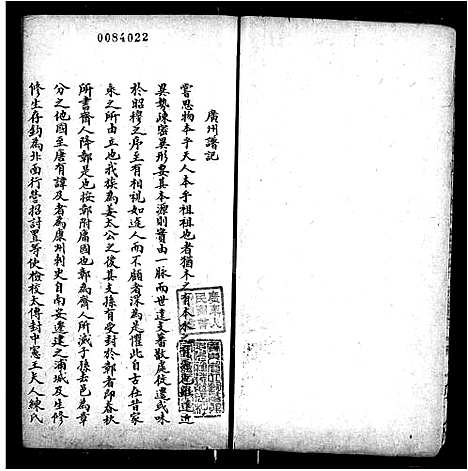 0084022
廣州譜記
嘗思物本乎天人本乎祖祖也者猶木之有本水
異勢疎密異形要其本源則實由一脉而世遠支蕃散處從遷或昧
於昭穆之序至有相視如途人而不顧者深為是懼此自古在昔家
乘之所由立也我族為姜太公之後其支孫有受封於鄣者即春秋
所書齊人降鄣是也按鄣附庸國也鄣為齊人所滅子孫去邑為章
分之他國至唐有諱及者為康州刺史自南安遷建之浦城及生修
修生存鈞為北面行營招討置等使檢校太傅封中憲王夫人練氏